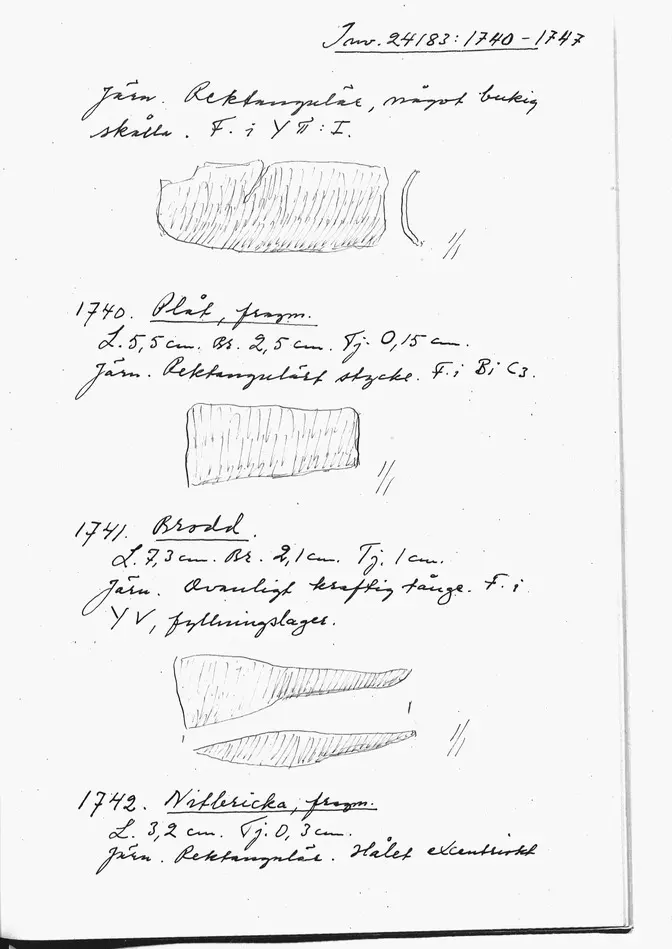 Inv. 24183:1740-1747
Järn. Rektangulär, något bukig
skålla. F. i Y II:I.
1/1
1740. Plåt, fragm.
L. 5,5 cm. Br. 2,5 cm. Tj. 0,15 cm.
Järn. Rektangulärt stycke. F. i Bi C3.
1/1
1741. Brodd.
L. 7,3 cm. Br. 2,1 cm. Tj. 1 cm.
Järn. Ovanligt kraftig tånge. F. i
Y V, fyllningslager.
1/1
1742. Nitbricka, fragm.
L. 3,2 cm. Tj. 0,3 cm.
Järn. Rektangulär. Hålet excentriskt